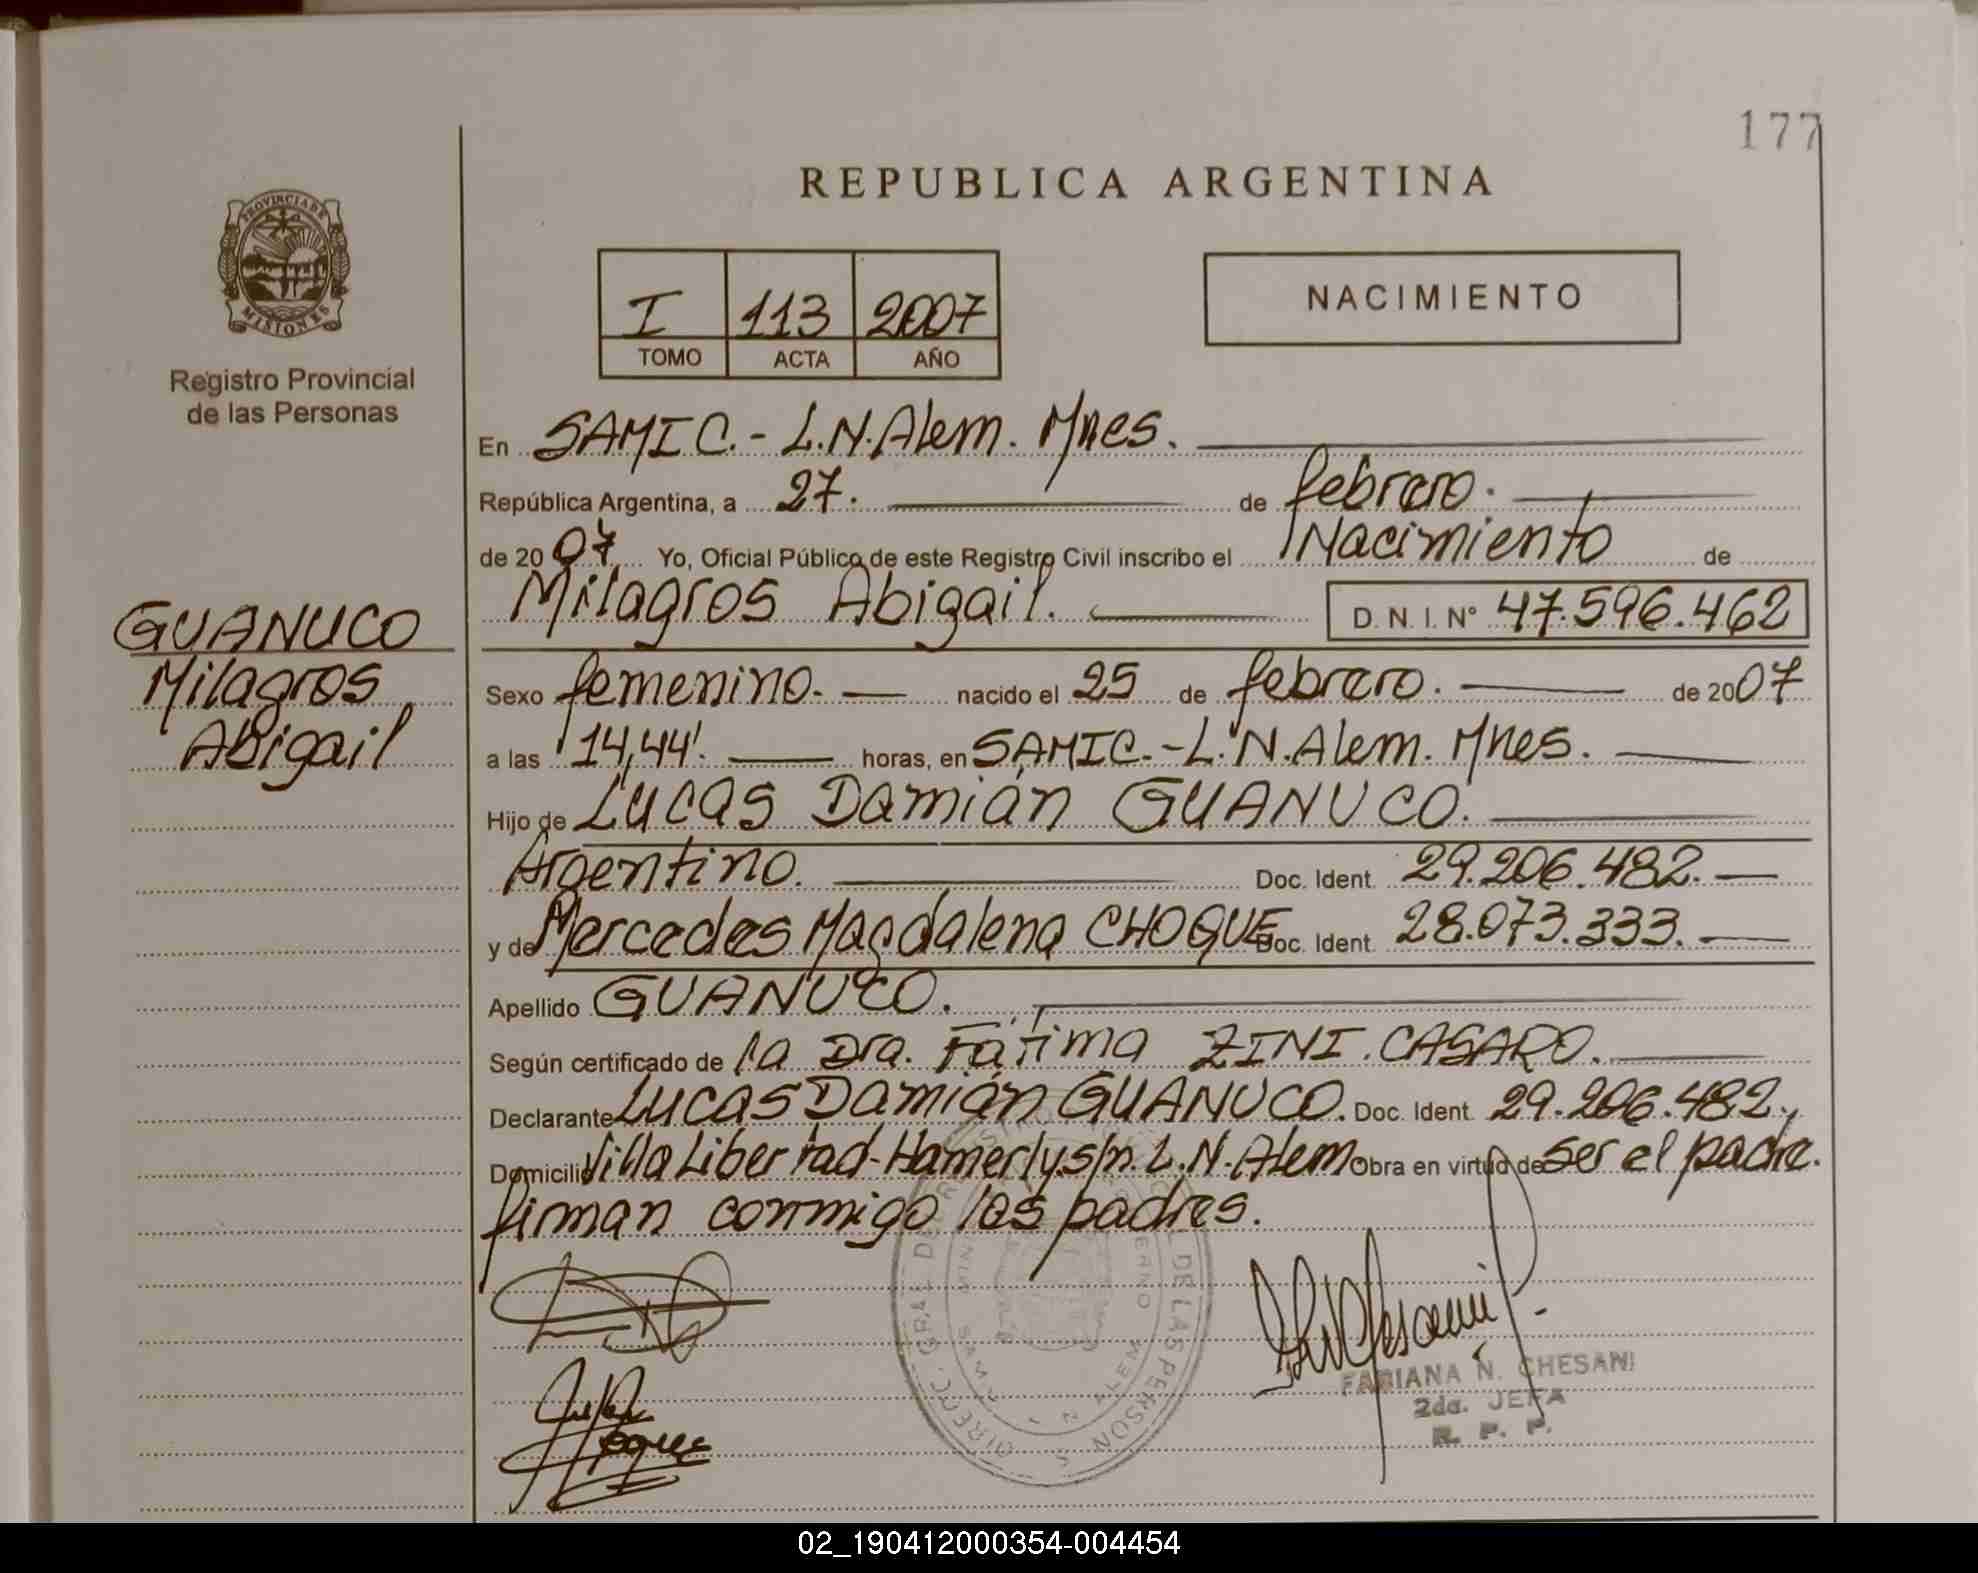 177
REPUBLICA ARGENTINA
PROVINCIA DE
MISIONES
Registro Provincial
de las Personas
I 113 2007
TOMO ACTA AÑO
NACIMIENTO
En SAMIC.- L.N.Alem. Mnes.
República Argentina, a 27. de febrero.
de 2007 Yo, Oficial Público de este Registro Civil inscribo el Nacimiento de
Milagros Abigail. D. N. I. N° 47.596.462
GUANUCO
Milagros
Abigail
Sexo femenino. nacido el 25 de febrero. de 2007
a las 14,44'. horas, en SAMIC.-L.N.Alem. Mnes.
Hijo de Lucas Damián GUANUCO.
Argentino. Doc. Ident. 29.206.482.
y de Mercedes Magdalena CHOQUE Doc. Ident. 28.073.333.
Apellido GUANUCO.
Según certificado de la Dra. Fátima ZINI.CASARO.
Declarante Lucas Damián GUANUCO. Doc. Ident. 29.206.482.,
Domicilio Villa Libertad-Hamerly.s/n. L.N.Alem. Obra en virtud de ser el padre.
firman conmigo los padres.
FABIANA N. CHESANI
2da. JEFA
R. P. P.
02_190412000354-004454